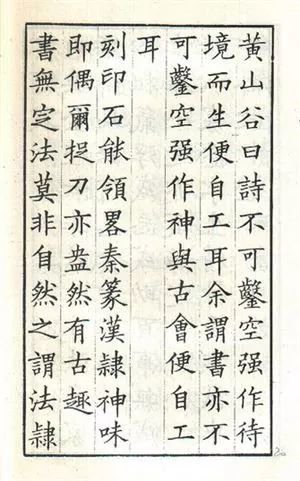 黃山谷曰詩不可鑿空强作待
境而生便自工耳余謂書亦不
可鑿空强作神與古會便自工
耳
刻印石能領畧秦篆漢隷神味
即偶爾捉刀亦盎然有古趣
書無定法莫非自然之謂法隷